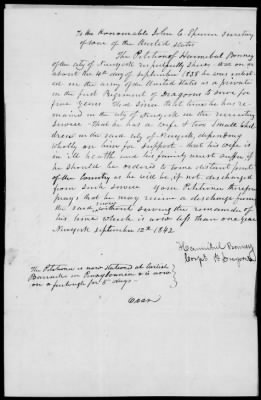 To the Honourable John C. Spencer Secretary
of War of the United States
The Petition of Hannibal Bonney
of the city of Newyork respectfully shews that on or
about the 4th day of September 1838 he was enlist
ed in the army of the United States as a private
in the first Regiment of Dragoons to serve for
five years That since that time he has re
mained in the city of Newyork in the recruiting
service – that he has a wife & two small chil
dren in the said city of Newyork, depending
wholly on him for support – that his wife is
in ill health and his family must suffer if
he should be ordered to some distant part
of the country as he will be, if not discharged
from such service your Petitioner therefore
prays that he may receive a discharge from
the said service without serving the remainder of
his time which is now less than one year
Newyork September 12th 1842
Hannibal Bonney
Corpl Dragoons
The Petitioner is now stationed at Carlisle
Barracks in Pennsylvania & is now
on a furlough for 8 days –